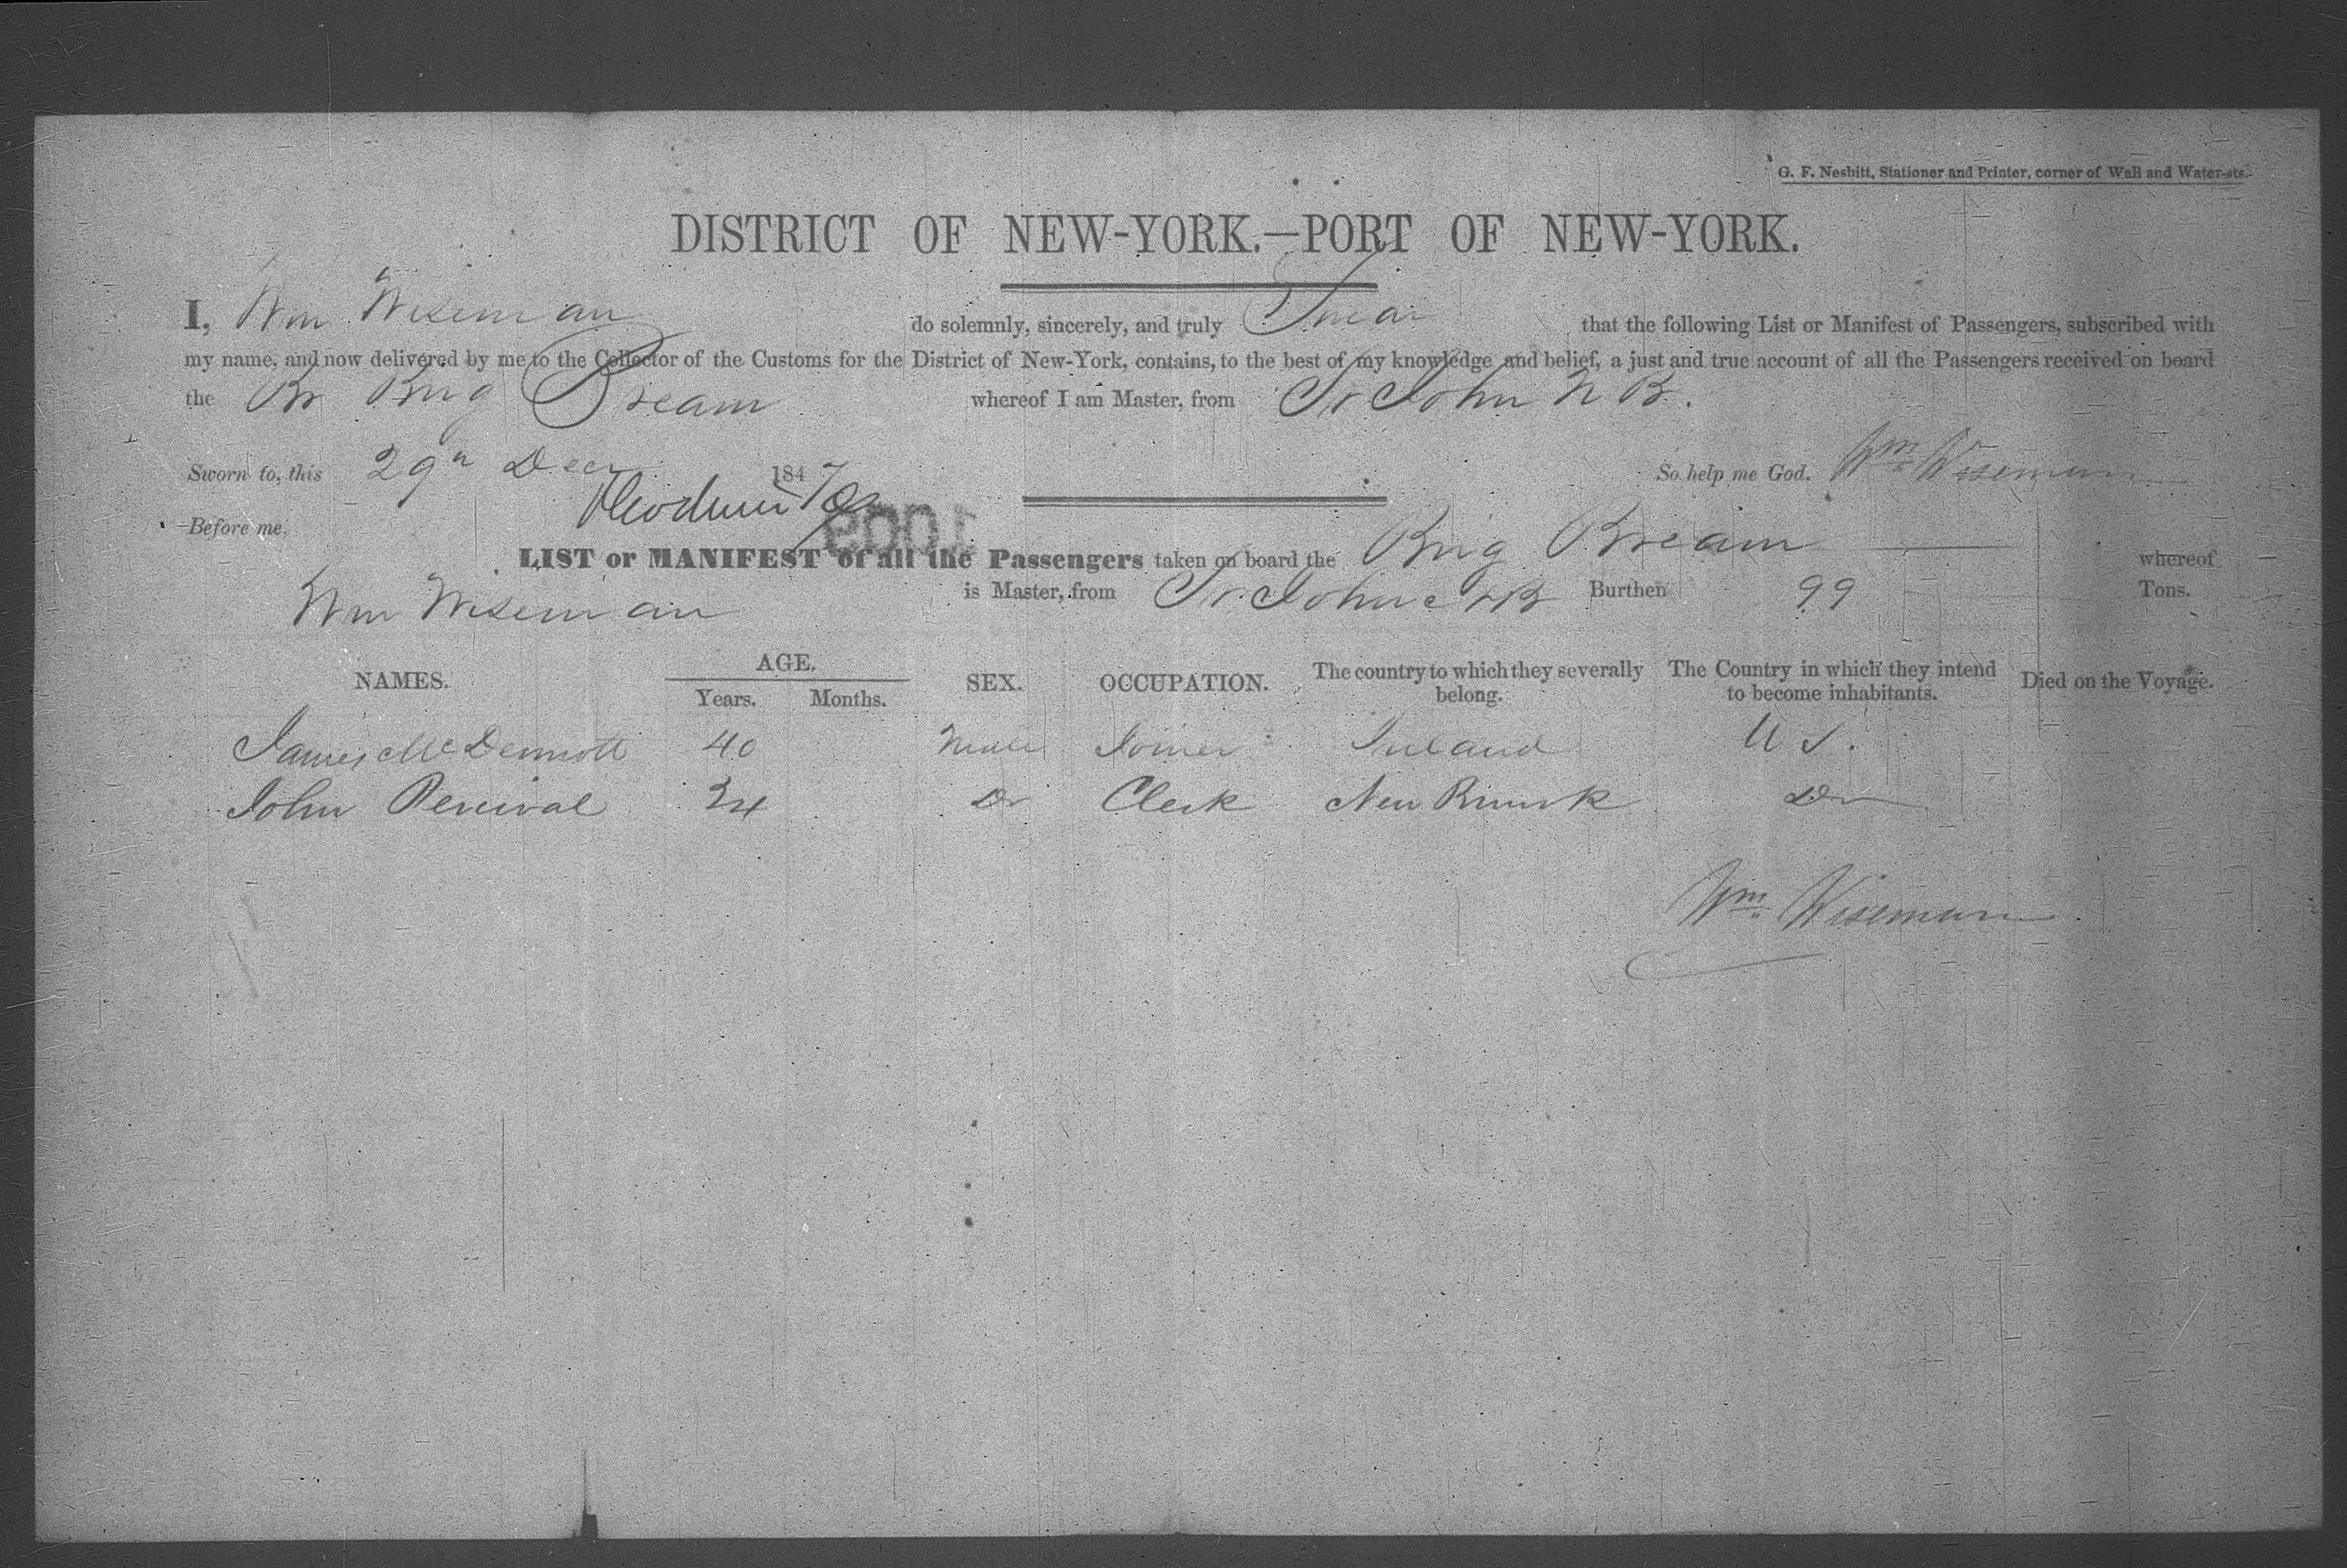 G. F. Nesbitt, Stationer and Printer, corner of Wall and Water-sts.
DISTRICT OF NEW-YORK.—PORT OF NEW-YORK.
I, Wm Wiseman do solemnly, sincerely, and truly Swear that the following List or Manifest of Passengers, subscribed with
my name, and now delivered by me to the Collector of the Customs for the District of New-York, contains, to the best of my knowledge and belief, a just and true account of all the Passengers received on board
the Br Brig Bream whereof I am Master, from St John N B.
Sworn to, this 29th Decr 1847 So help me God. Wm Wiseman
Before me,
LIST or MANIFEST of all the Passengers taken on board the Brig Bream whereof
Wm Wiseman is Master, from St. John NB Burthen 99 Tons.
NAMES. AGE. Years. Months. SEX. OCCUPATION. The country to which they severally belong. The Country in which they intend to become inhabitants. Died on the Voyage.
James McDermott 40 Male Joiner Ireland U S.
John Percival 34 Do Clerk New Brunsk Do
Wm Wiseman